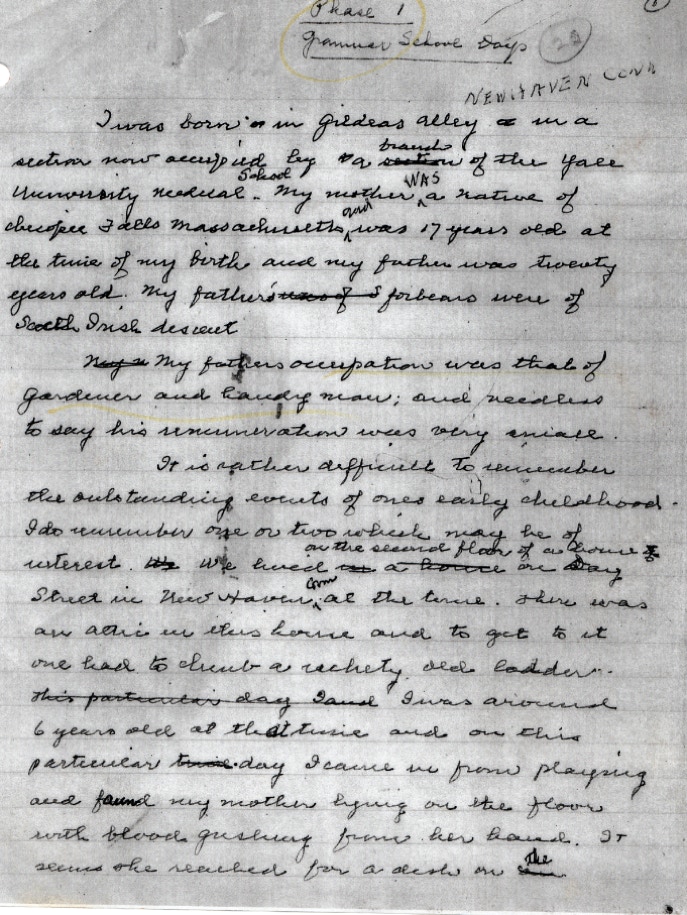 Phase 1
Grammar School Days
NEW HAVEN CONN
I was born in Gildeas alley in a
section now occupied by a branch section of the Yale
University Medical School. My mother WAS a native of
chicopee Falls Massachusetts, and was 17 years old at
the time of my birth and my father was twenty
years old. My father's forbears were of
Scotch Irish descent
My fathers occupation was that of
gardener and handy man; and needless
to say his remuneration was very small.
It is rather difficult to remember
the outstanding events of ones early childhood.
I do remember one or two which may be of
interest. We We lived on the second floor of a house in a house on Day
Street in New Haven, Conn at the time. There was
an attic in this home and to get to it
one had to climb a rickety old ladder.
this particular day I and I was around
6 years old at that time and on this
particular time day I came in from playing
and found my mother lying on the floor
with blood gushing from her hand. It
seems she reached for a dish on the